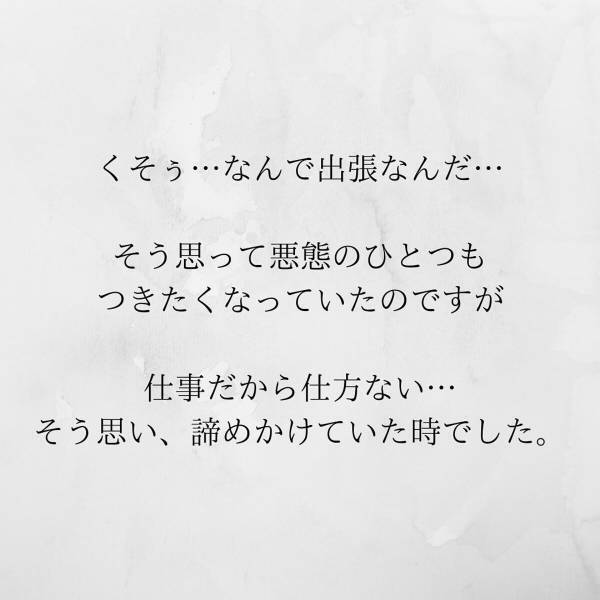 くそぅ…なんで出張なんだ…
そう思って悪態のひとつも
つきたくなっていたのですが
仕事だから仕方ない…
そう思い、諦めかけていた時でした。